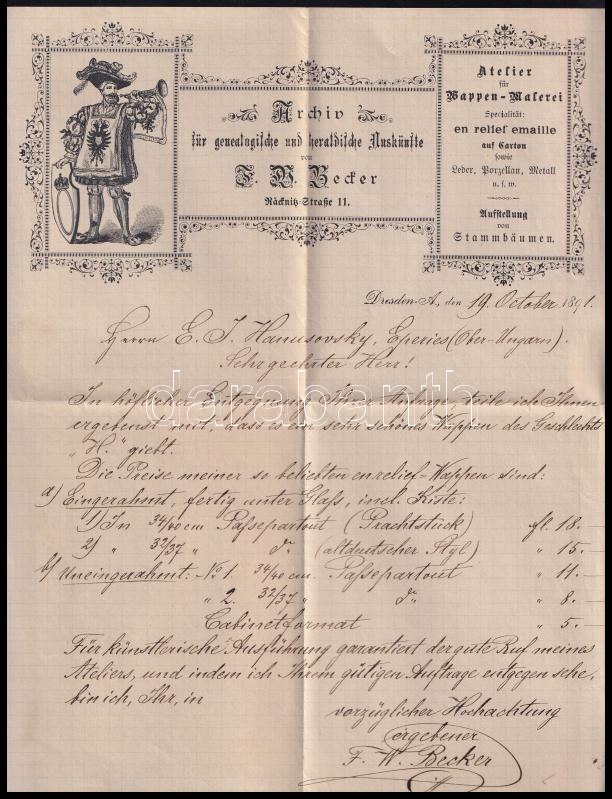 Archiv
für genealogische und heraldische Auskünfte
von
F. W. Becker
Räcknitz-Straße 11.
Atelier
für
Wappen-Malerei
Specialität:
en relief emaille
auf Carton
sowie
Leder, Porzellan, Metall
u. s. w.
Aufstellung
von
Stammbäumen.
Dresden-A., den 19. October 1891.
Herrn E. J. Hanusovsky, Eperies (Ober-Ungarn).
Sehrgeehrter Herr!
In höflicher Entgegnung Ihrer Anfrage, teile ich Ihnen
ergebenst mit, dass es ein sehr schönes Wappen des Geschlechts
„H." giebt.
Die Preise meiner so beliebten enrelief-Wappen sind:
a) Eingerahmt, fertig unter Glass, incl. Kiste:
1) In 34/40 cm Passepartout (Prachtstück) fl. 18.—
2) „ 32/37 „ do (altdeutscher Styl) „ 15.—
b) Uneingerahmt: No 1. 34/40 cm. Passepartout „ 11.—
„ 2. 32/37 „ do „ 8.—
Cabinetformat „ 5.—
Für künstlerische Ausführung garantiert der gute Ruf meines
Ateliers, und indem ich Ihrem gütigen Auftrage entgegen sehe,
bin ich, Ihr, in
vorzüglicher Hochachtung
ergebener
F. W. Becker
darabanth